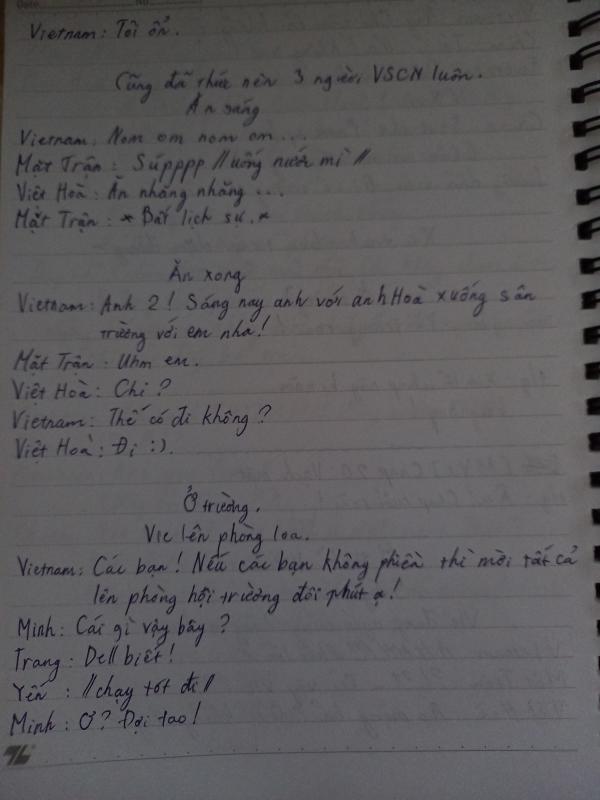 Date No
Vietnam: Tôi ổn.
Cũng đã thức nên 3 người VSCN luôn.
Ăn sáng
Vietnam: Nom om nom om...
Mặt Trận: Súpppp //uống nước mì//
Việt Hoà: Ăn nhăng nhăng...
Mặt Trận: *Bất lịch sự.*
Ăn xong
Vietnam: Anh 2! Sáng nay anh với anh Hoà xuống sân
trường với em nhá!
Mặt Trận: Uhm em.
Việt Hoà: Chi?
Vietnam: Thế có đi không?
Việt Hoà: Đi :).
Ở trường.
Vie lên phòng loa.
Vietnam: Các bạn! Nếu các bạn không phiền thì mời tất cả
lên phòng hội trường đôi phút ạ!
Minh: Cái gì vậy bây?
Trang: Dell biết!
Yến: //chạy tót đi//
Minh: Ơ? Đợi tao!